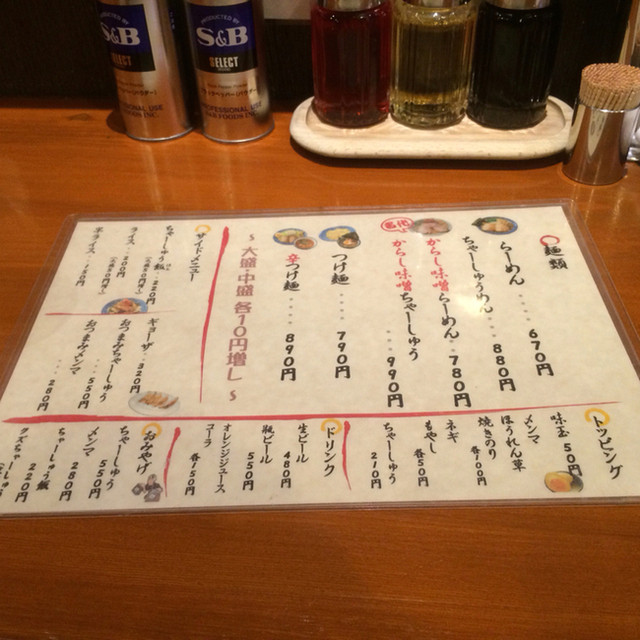 PRODUCED BY
S&B
SELECT
PROFESSIONAL USE
S&B FOODS INC.
PRODUCED BY
S&B
SELECT
PROFESSIONAL USE
S&B FOODS INC.
麺類
らーめん・・・・670円
ちゃーしゅうめん・・880円
からし味噌らーめん・・780円
からし味噌ちゃーしゅう・・・・990円
つけ麺・・・・790円
辛つけ麺・・・・890円
~大盛・中盛 各110円増し~
サイドメニュー
ちゃーしゅう飯・・220円
ライス・・200円
半ライス・・150円
ギョーザ・・320円
おつまみちゃーしゅう・・・550円
おつまみメンマ・・・・280円
トッピング
味玉 50円
メンマ
ほうれん草
焼きのり 各100円
ネギ
もやし 各50円
ちゃーしゅう 210円
ドリンク
生ビール 480円
瓶ビール 550円
オレンジジュース
コーラ 各150円
おみやげ
ちゃーしゅう 550円
メンマ 280円
ちゃーしゅう飯 220円